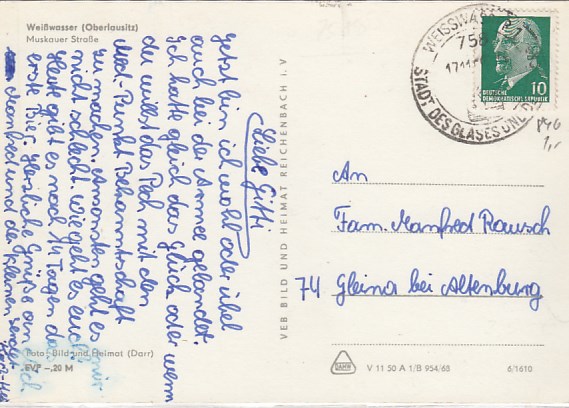 Weißwasser (Oberlausitz)
Muskauer Straße
Liebe Gitti
Jetzt bin ich wohl oder übel
auch bei der Armee gelandet.
Ich hatte gleich das Glück oder wenn
du willst das Pech mit den
Med.-Punkt Bekanntschaft
zu machen. Ansonsten geht es mir
nicht schlecht. wie geht es euch?
Heute gibt es nach 14 Tagen das
erste Bier. Herzliche Grüße an dich
Manfred und die kleinen sendet
Foto: Bild und Heimat (Darr)
EVP -.20 M
VEB BILD UND HEIMAT REICHENBACH I. V
WEISSWASSER
758
17.11.
STADT DES GLASES UND
DEUTSCHE
DEMOKRATISCHE REPUBLIK
10
1,-
An
Fam. Manfred Rausch
74 Gleina bei Altenburg
V 11 50 A 1/B 954/68
6/1610